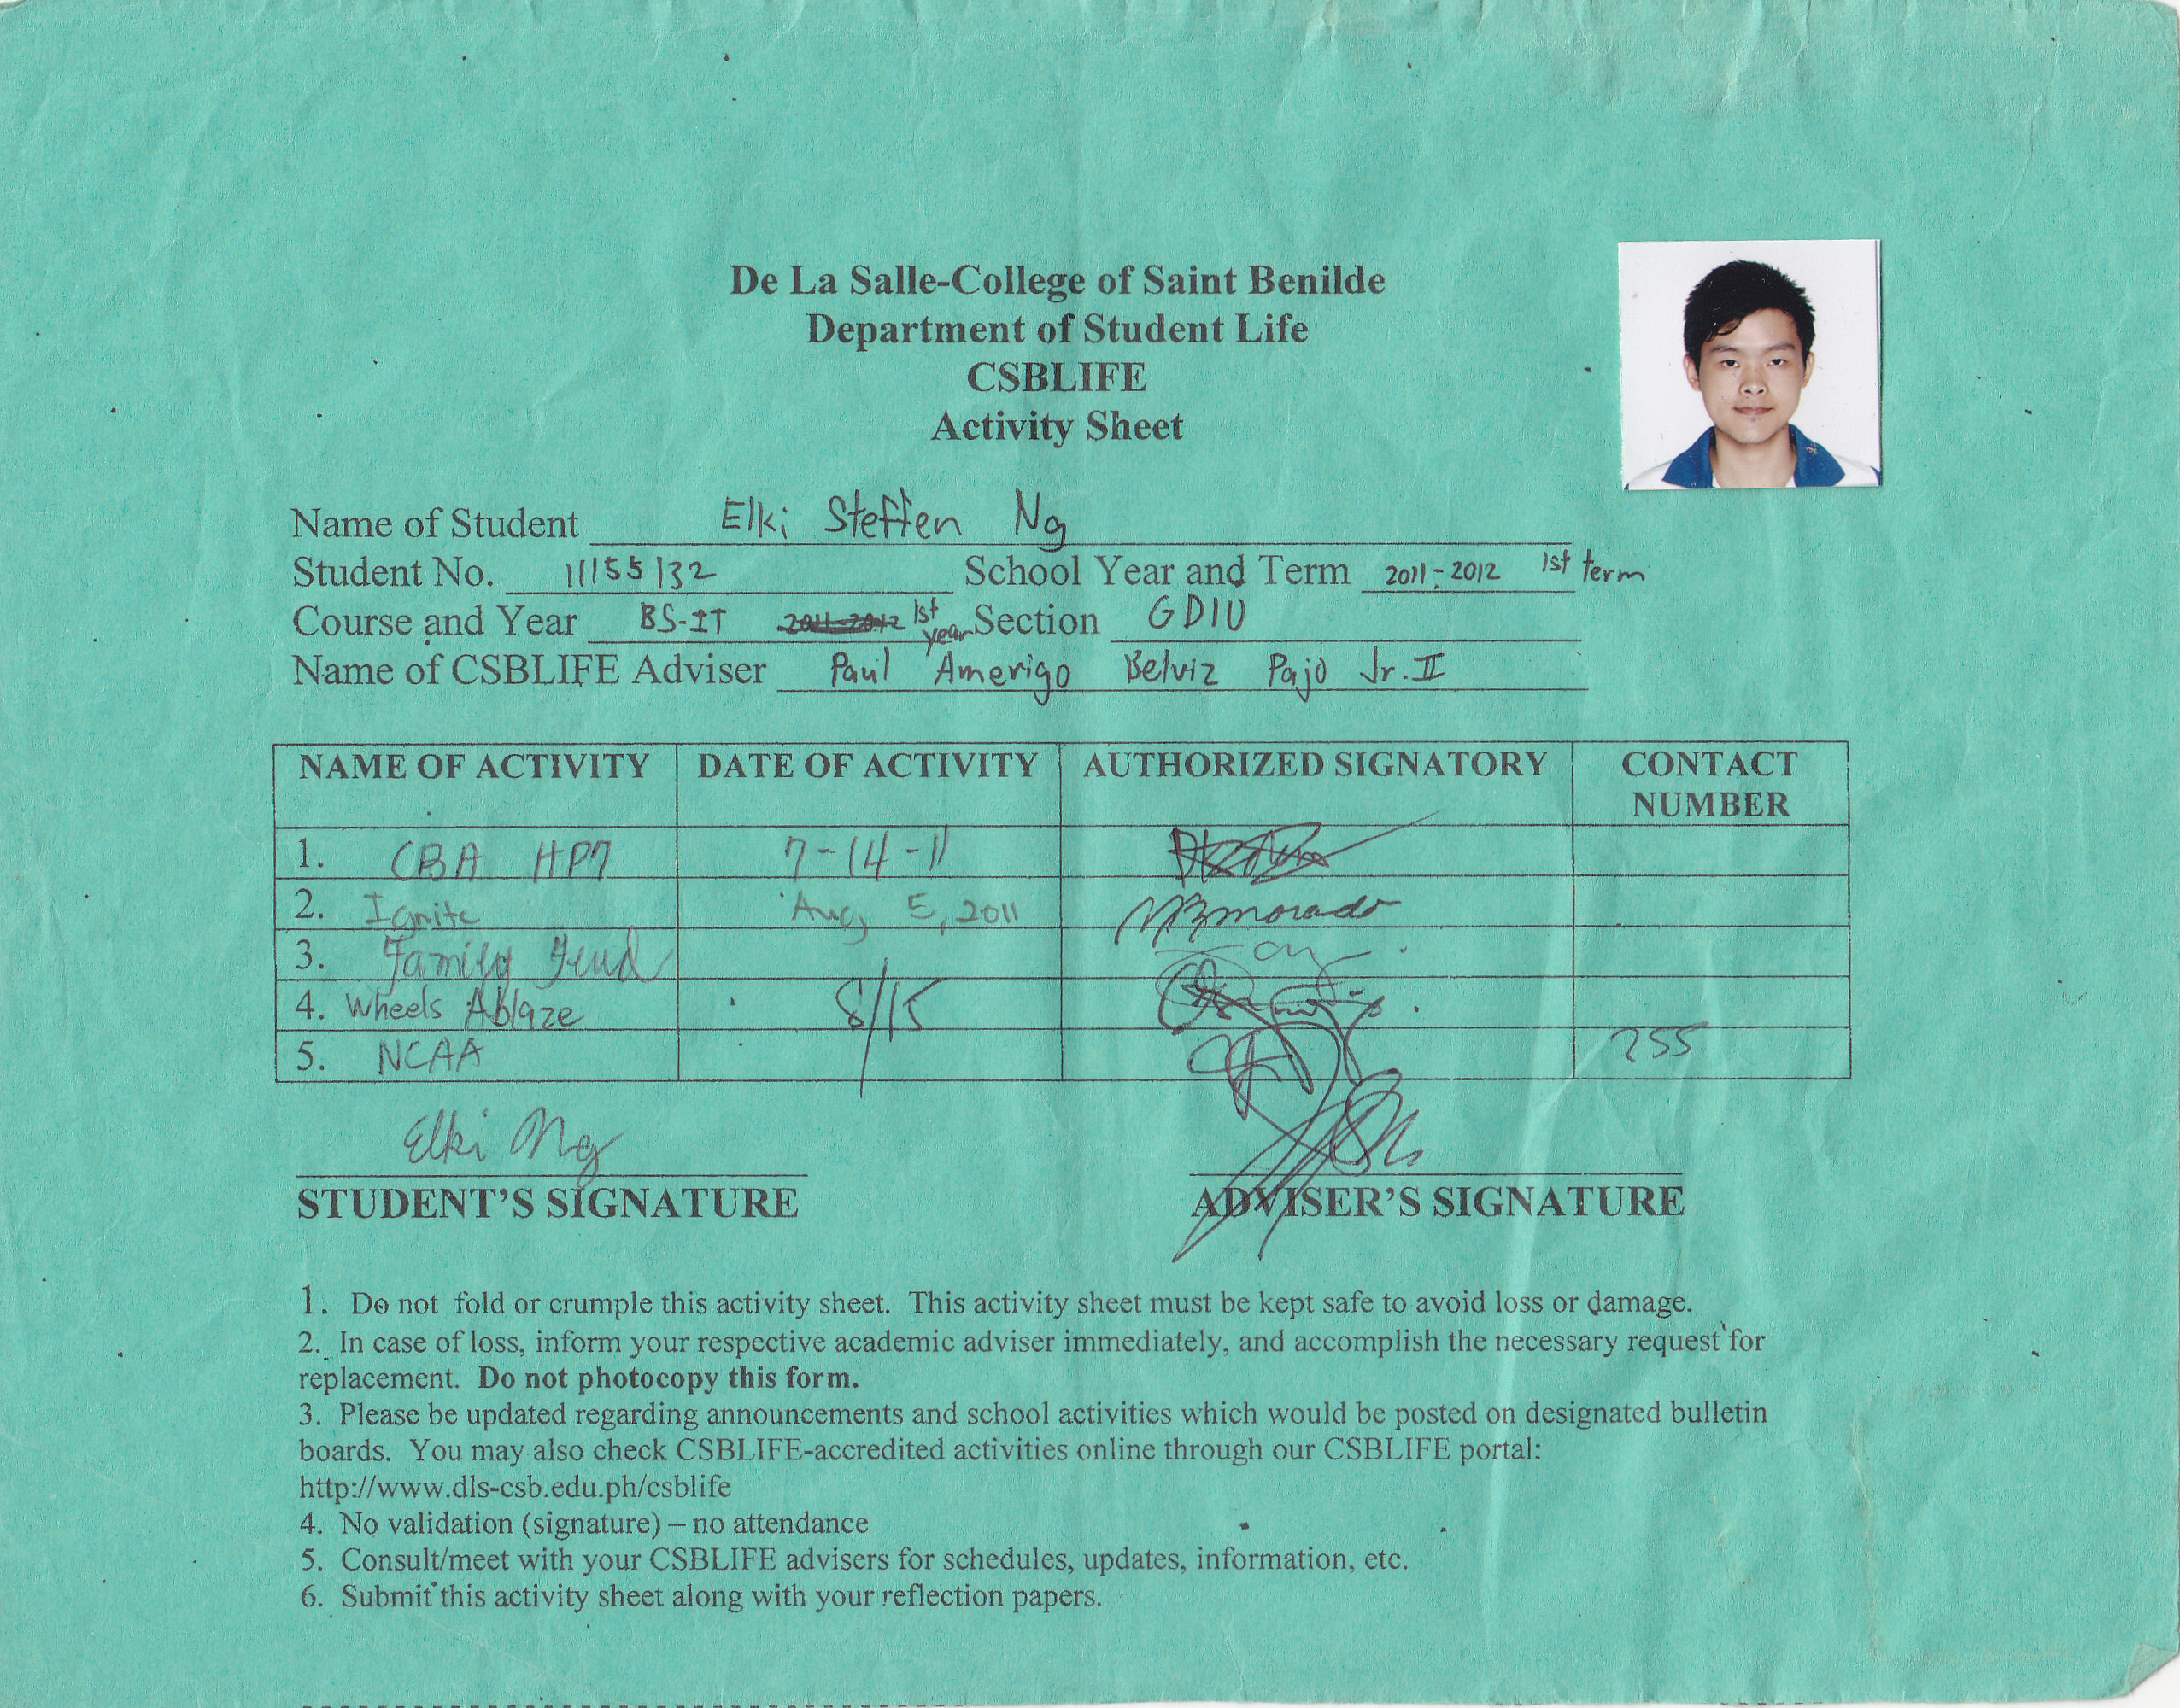 De La Salle-College of Saint Benilde
Department of Student Life
CSBLIFE
Activity Sheet
Name of Student Elki Steffen Ng
Student No. 11155132 School Year and Term 2011-2012 1st term
Course and Year BS-IT 2011-2012 1st year Section GD1U
Name of CSBLIFE Adviser Paul Amerigo Belviz Pajo Jr. II
NAME OF ACTIVITY DATE OF ACTIVITY AUTHORIZED SIGNATORY CONTACT NUMBER
1. CBA HP7 7-14-11
2. Ignite Aug 5, 2011
3. Family Feud
4. Wheels Ablaze 8/15
5. NCAA 255
Elki Ng
STUDENT'S SIGNATURE ADVISER'S SIGNATURE
1. Do not fold or crumple this activity sheet. This activity sheet must be kept safe to avoid loss or damage.
2. In case of loss, inform your respective academic adviser immediately, and accomplish the necessary request for
replacement. Do not photocopy this form.
3. Please be updated regarding announcements and school activities which would be posted on designated bulletin
boards. You may also check CSBLIFE-accredited activities online through our CSBLIFE portal:
http://www.dls-csb.edu.ph/csblife
4. No validation (signature) – no attendance
5. Consult/meet with your CSBLIFE advisers for schedules, updates, information, etc.
6. Submit this activity sheet along with your reflection papers.